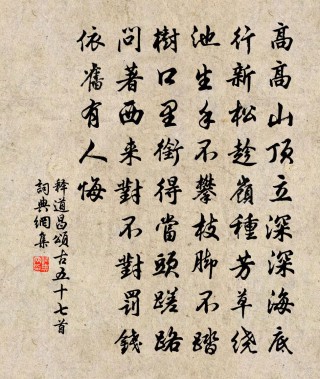 高高山頂立深深海底
行新松趁嶺種芳草繞
池生手不攀枝脚不踏
樹口里銜得當頭蹉路
問著西来對不對罰錢
依舊有人悔
釋道昌頌古五十七首
詞典網集